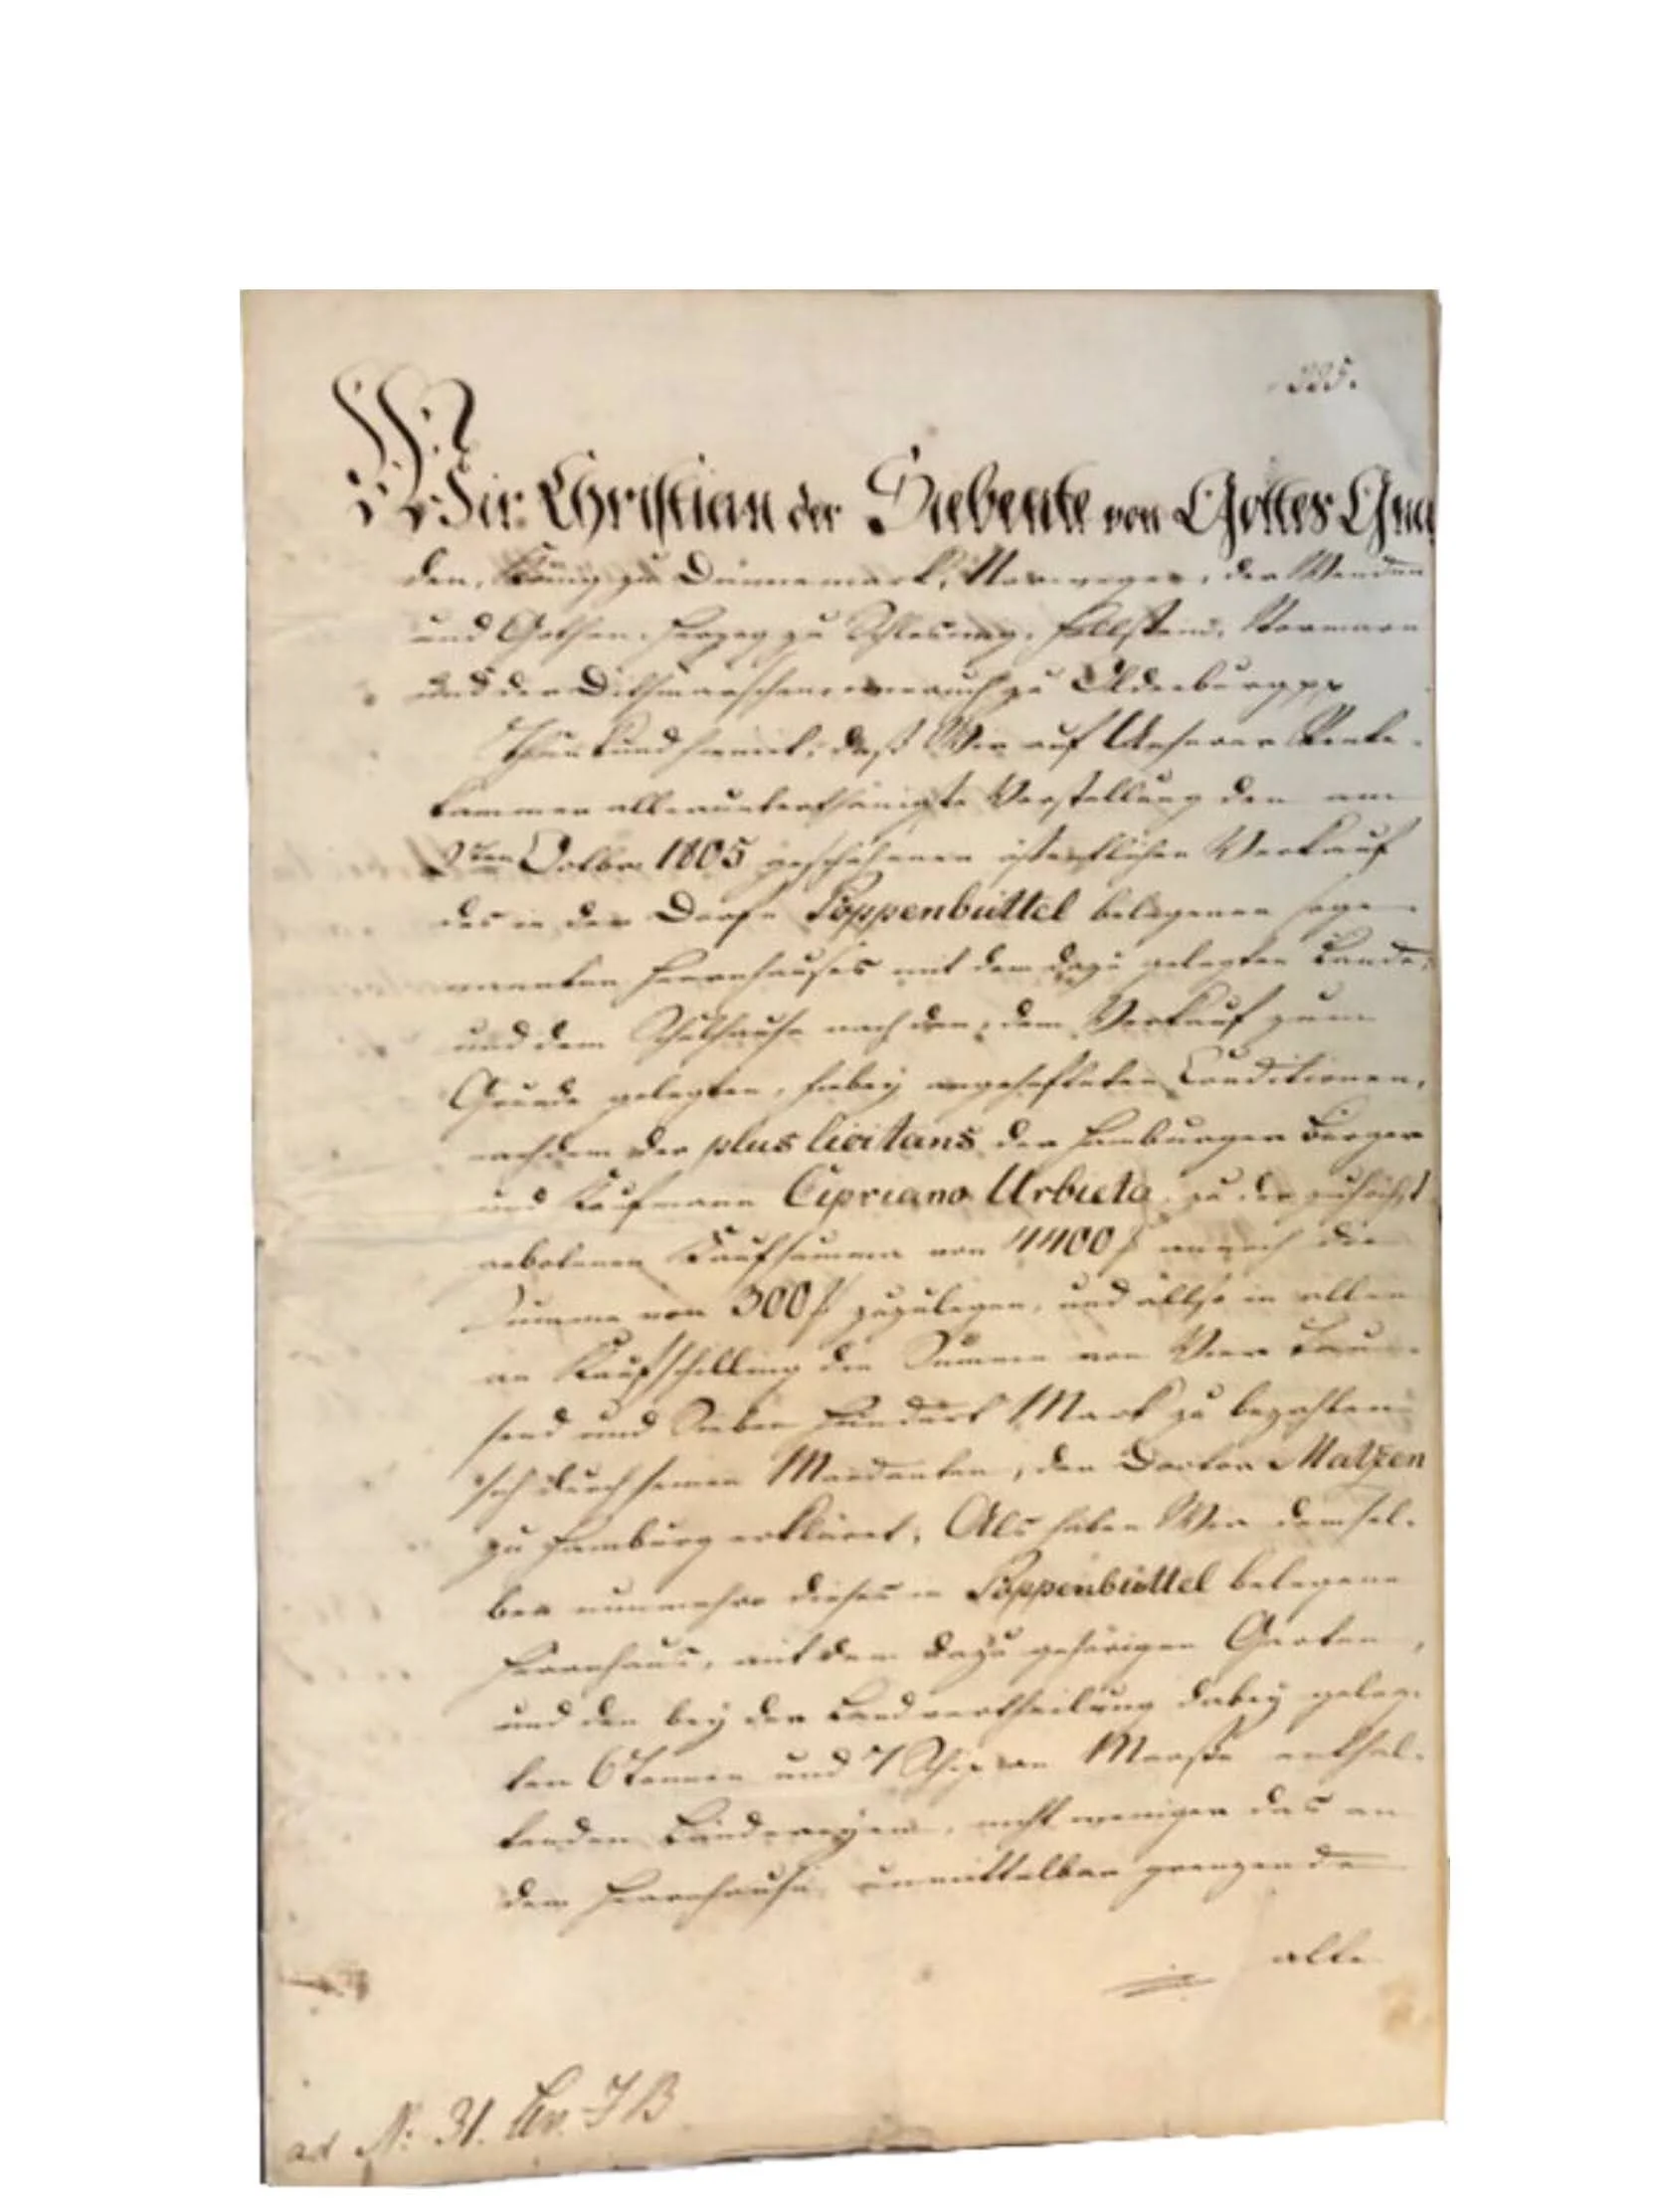 225.
Wir Christian der Siebente von Gottes Gna
den, König zu Dännemark, Norwegen, der Wenden
und Gothen, Herzog zu Schleswig, Hollstein, Stormarn
und der Dithmarschen, wie auch zu Oldenburg pp
Thun kund hiemit, daß Wir auf Unserer Rente-
kammer allerunterthänigste Vorstellung den am
2ten Octbr 1805 geschehenen öffentlichen Verkauf
des in dem Dorfe Poppenbüttel belegenen soge-
nannten Herrnhauses mit dem dazu gelegten Lande,
und dem Schulhause nach den, dem Verkauf zum
Grunde gelegten, hiebey angehefteten Conditionen,
nachdem der plus licitans der Hamburger Bürger
und Kaufmann Cipriano Urbieta zu der zuhöchst
gebotenen Kaufsumme von 4400 annoch die
Summe von 300 zuzulegen, und also in allem
an Kaufschilling die Summe von Vier Tau-
send und Sieben Hundert Mark zu bezahlen
sich durch seinen Mandanten, den Doctor Matzen
zu Hamburg erkläret, Als haben Wir demsel-
ben nunmehro dieses in Poppenbüttel belegene
Herrnhaus, mit dem dazu gehörigen Garten,
und den bey der Landvertheilung dabey geleg-
ten 6 Tonnen und 7 Schip an Maaße enthal-
tenden Ländereyen, nicht weniger das an
dem Herrnhause unmittelbar grenzende
alle
ad N: 31.